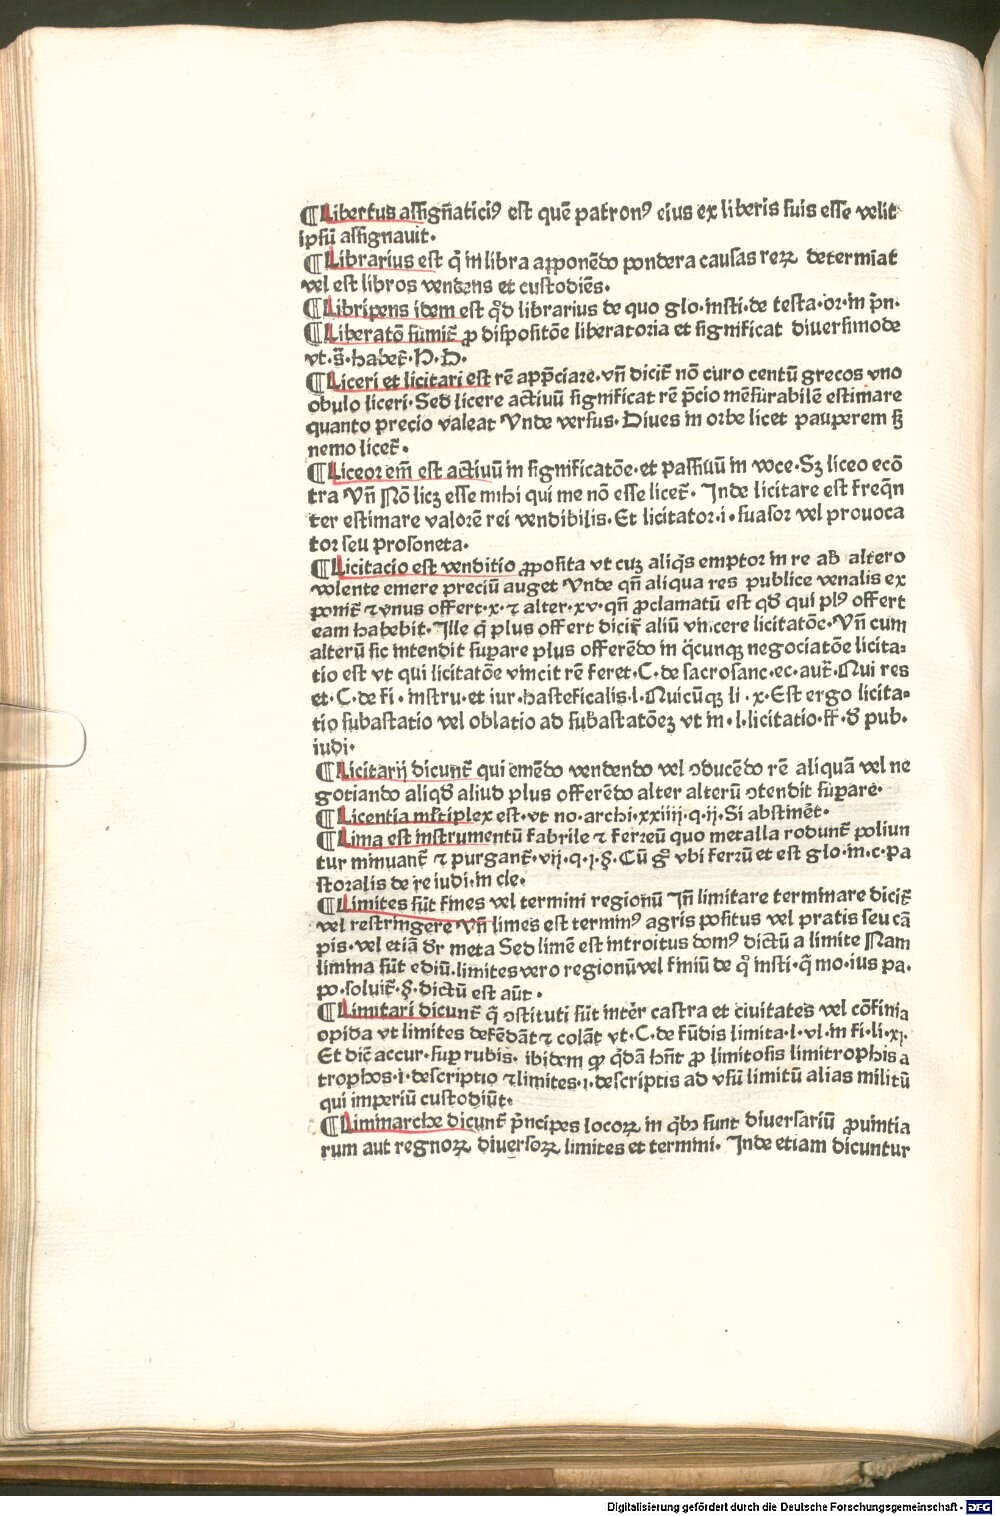 ¶Libertus assigñatici⁹ est quē patron⁹ eius ex liberis suis esse velit
ipsū assignauit.
¶Librarius est q̄ in libra apponēdo pondera causas reꝝ determīat
vel est libros vendens et custodiēs.
¶Libripens idem est qd̄ librarius de quo glo.insti.de testa.or.in prin.
¶Liberatō sumit̄ ꝓ dispositōe liberatoria et significat diuersimode
vt.s̄.habet̄.D.D.
¶Liceri et licitari est rē app̄ciare.vn̄ dicit̄ nō curo centū grecos vno
obulo liceri.Sed licere actiuū significat rē p̄cio mēsurabilē estimare
quanto precio valeat Vnde versus.Diues in orbe licet pauperem sꝫ
nemo licet̄.
¶Liceor em̄ est actiuū in significatōe.et passiuū in voce.Sꝫ liceo ecō
tra Vn̄ Nō licꝫ esse mihi qui me nō esse licet̄. Inde licitare est freq̄n
ter estimare valorē rei vendibilis.Et licitator.i.suasor vel prouoca
tor seu prosoneta.
¶Licitacio est venditio ꝓposita vt cuꝫ aliq̄s emptor in re ab altero
volente emere preciū auget Vnde qn̄ aliqua res publice venalis ex
ponit̄ ⁊ vnus offert.x.⁊ alter.xv.qn̄ ꝓclamatū est qd̄ qui pl⁹ offert
eam habebit.Ille q̄ plus offert dicit̄ aliū vincere licitatōe.Vn̄ cum
alterū sic intendit suꝑare plus offerēdo in q̄cunqꝫ negociatōe licita-
tio est vt qui licitatōe vincit rē feret.C.de sacrosanc.ec.aut̄.Qui res
et.C.de fi.instru.et iur.hasteficalis.l.Quicūqꝫ li.x.Est ergo licita-
tio subastatio vel oblatio ad subastatōeꝫ vt in.l.licitatio.ff.d̄ pub.
iudi.
¶Licitarij dicunt̄ qui emēdo vendendo vel ꝯducēdo rē aliquā vel ne
gotiando aliqd̄ aliud plus offerēdo alter alterū ꝯtendit suꝑare.
¶Licentia ml̄tiplex est.vt no.archi.xxiiij.q.ij.Si abstinēt.
¶Lima est instrumentū fabrile ⁊ ferreū quo metalla rodunt̄ poliun
tur minuant̄ ⁊ purgant̄.vij.q.j.§.Cū g° vbi ferrū et est glo.in.c.pa
storalis de re iudi.in cle.
¶Limites sūt fines vel termini regionū In̄ limitare terminare dicit̄
vel restringere Vn̄ limes est termin⁹ agris positus vel pratis seu cā
pis.vel etiā dr̄ meta Sed limē est introitus dom⁹ dictū a limite Nam
limina sūt ediū.limites vero regionū vel finiū de q° insti.q̄ mo.ius pa.
po.soluit̄.§.dictū est aūt.
¶Limitari dicunt̄ q̄ ꝯstituti sūt inter castra et ciuitates vel cōfinia
opida vt limites defēdāt ⁊ colāt vt.C.de fūdis limita.l.vl.in fi.li.xj.
Et dic̄ accur.suꝑ rubis.ibidem ꝙ q̄dā hn̄t ꝓ limitosis limitrophis a
trophos.i.descriptio ⁊ limites.i.descriptis ad vsū limitū alias militū
qui imperiū custodiūt.
¶Liminarche dicunt̄ p̄ncipes locoꝝ in qb⁹ sunt diuersariū ꝓuintia
rum aut regnoꝝ diuersoꝝ limites et termini. Inde etiam dicuntur
Digitalisierung gefördert durch die Deutsche Forschungsgemeinschaft - DFG